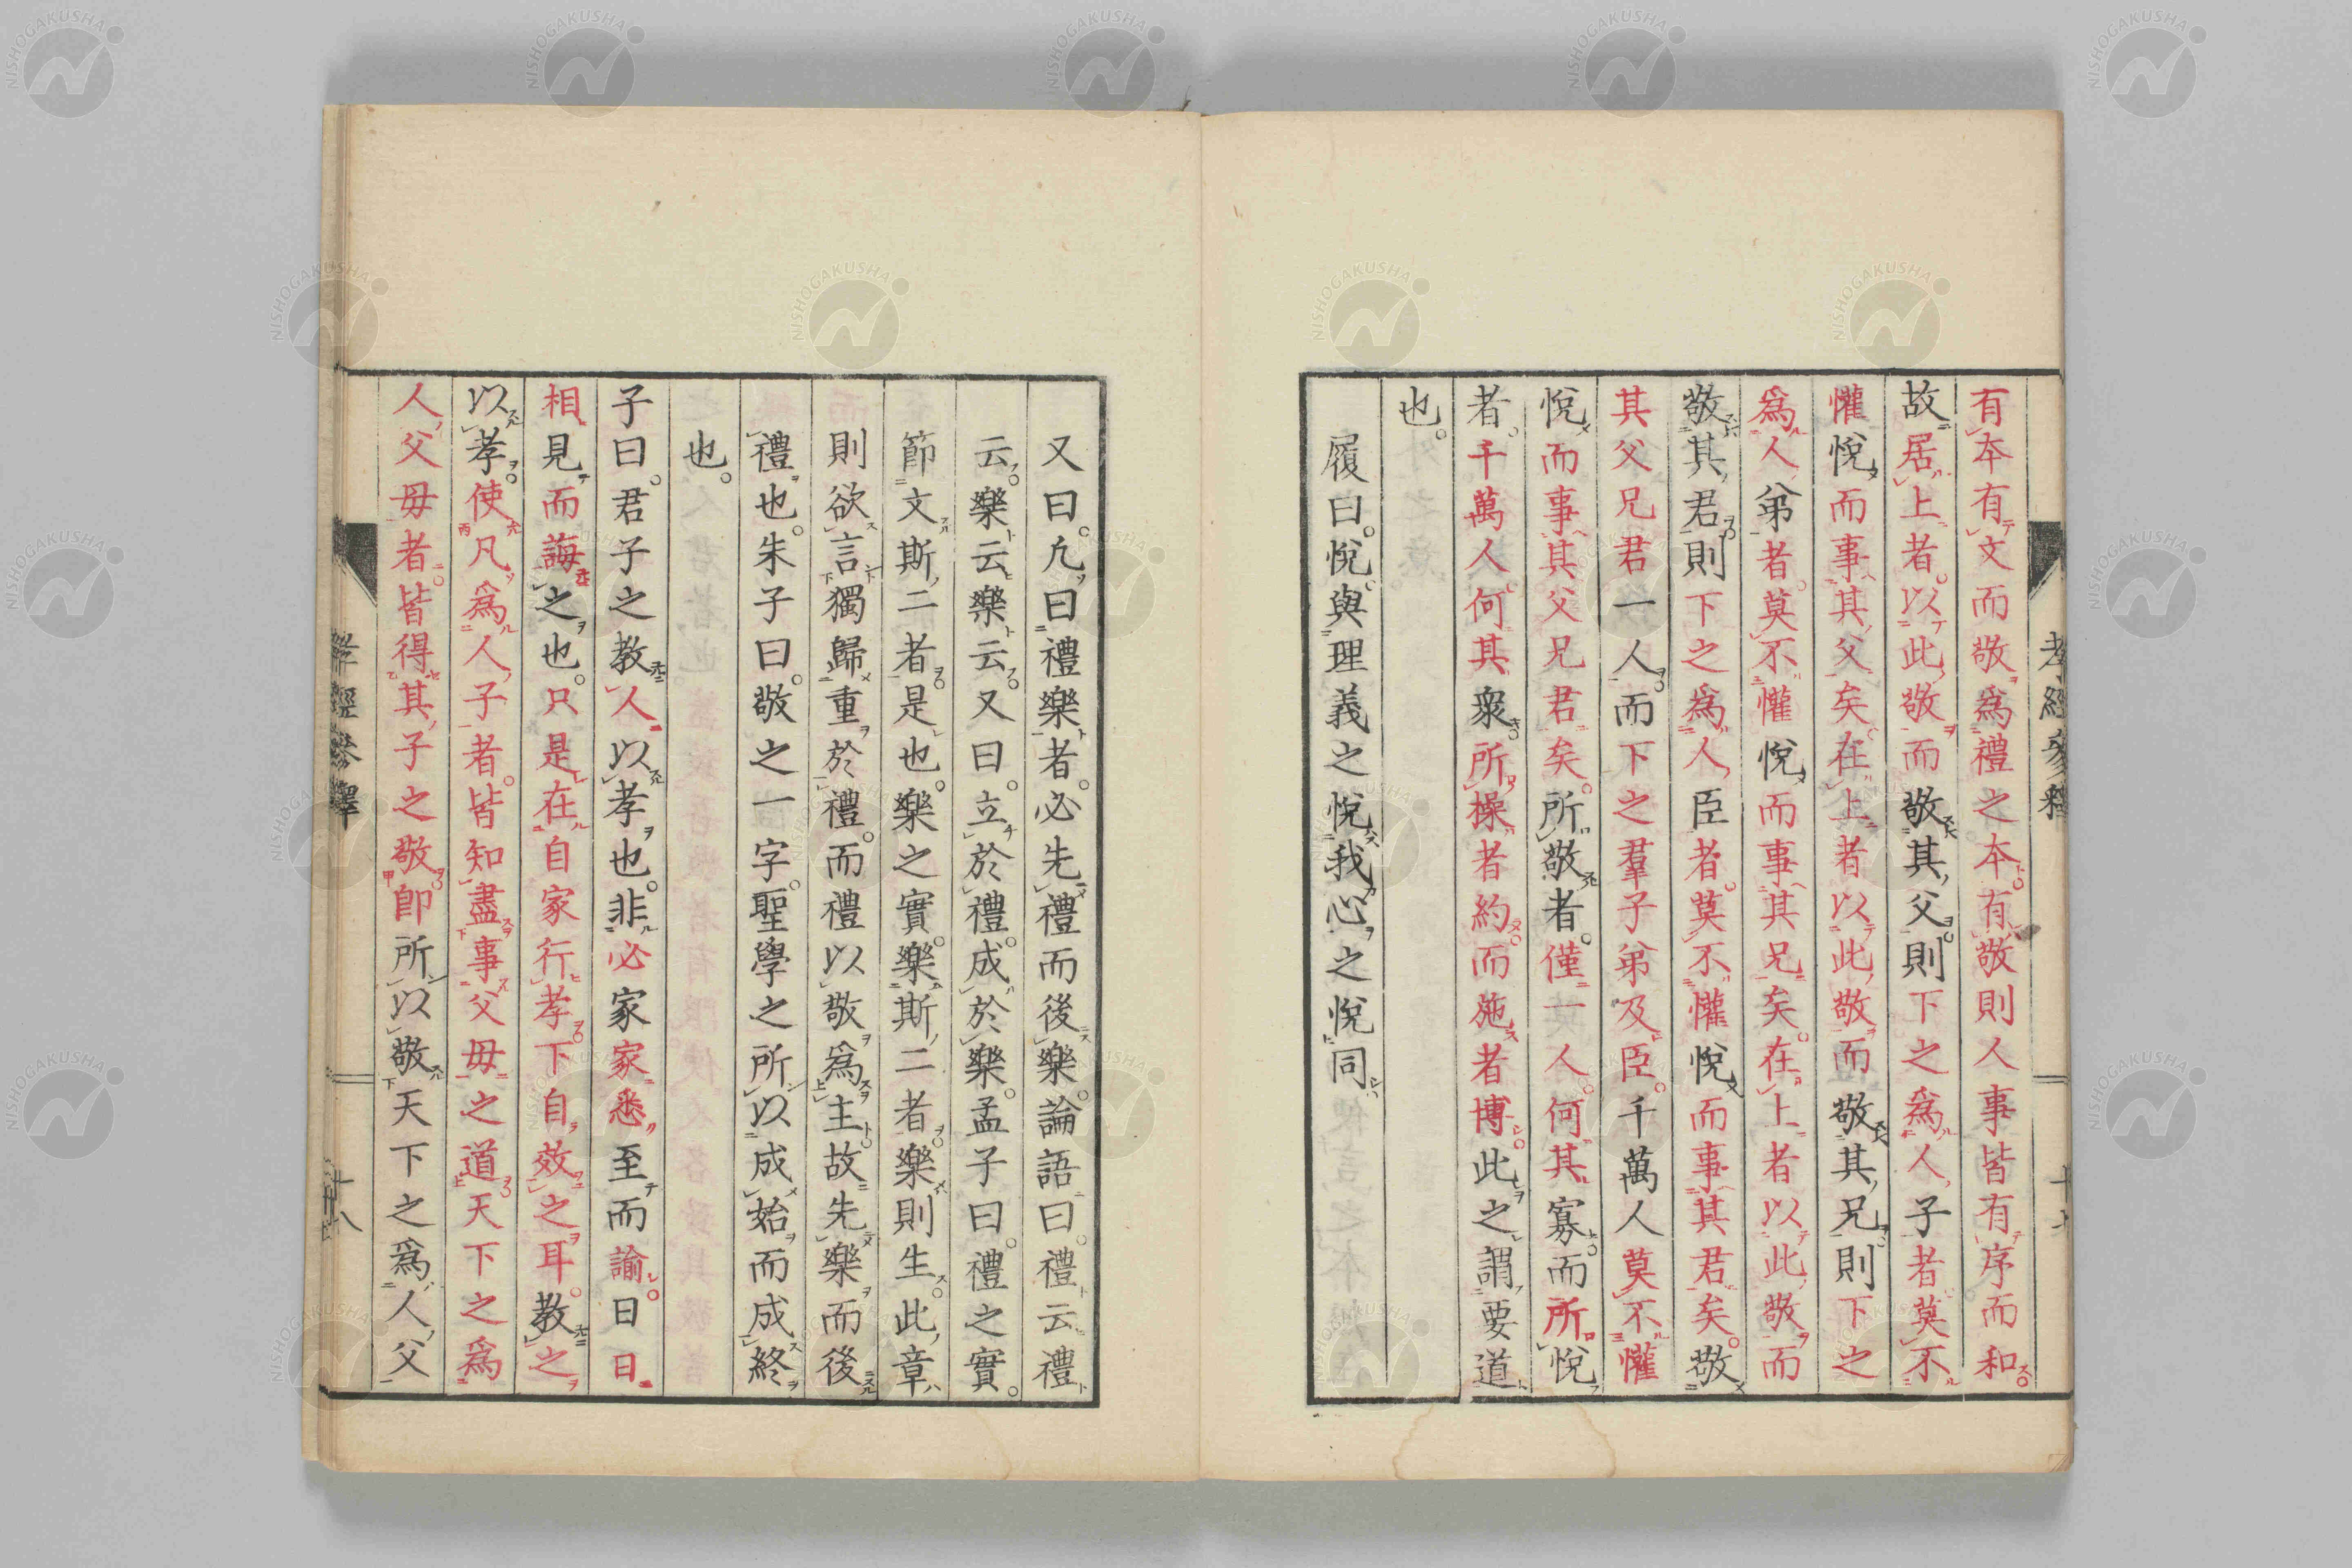 有本有文而敬爲禮之本有敬則人事皆有序而和
故居上者以此敬而敬其父則下之爲人子者莫不
懽悅而事其父矣在上者以此敬而敬其兄則下之
爲人弟者莫不懽悅而事其兄矣在上者以此敬而
敬其君則下之爲人臣者莫不懽悅而事其君矣敬
其父兄君一人而下之羣子弟及臣千萬人莫不懽
悅而事其父兄君矣所敬者僅一人何其寡而所悅
者千萬人何其衆所操者約而施者博此之謂要道
也
履曰悅與理義之悅我心之悅同
又曰凡曰禮樂者必先禮而後樂論語曰禮云禮
云樂云樂云又曰立於禮成於樂孟子曰禮之實
節文斯二者是也樂之實樂斯二者樂則生此章
則欲言獨歸重於禮而禮以敬爲主故先樂而後
禮也朱子曰敬之一字聖學之所以成始而成終
也
子曰君子之教人以孝也非必家家悉至而諭日日
相見而誨之也只是在自家行孝下自效之耳教之
以孝使凡爲人子者皆知盡事父母之道天下之爲
人父母者皆得其子之敬卽所以敬天下之爲人父
孝經參釋
NISHOGAKUSHA